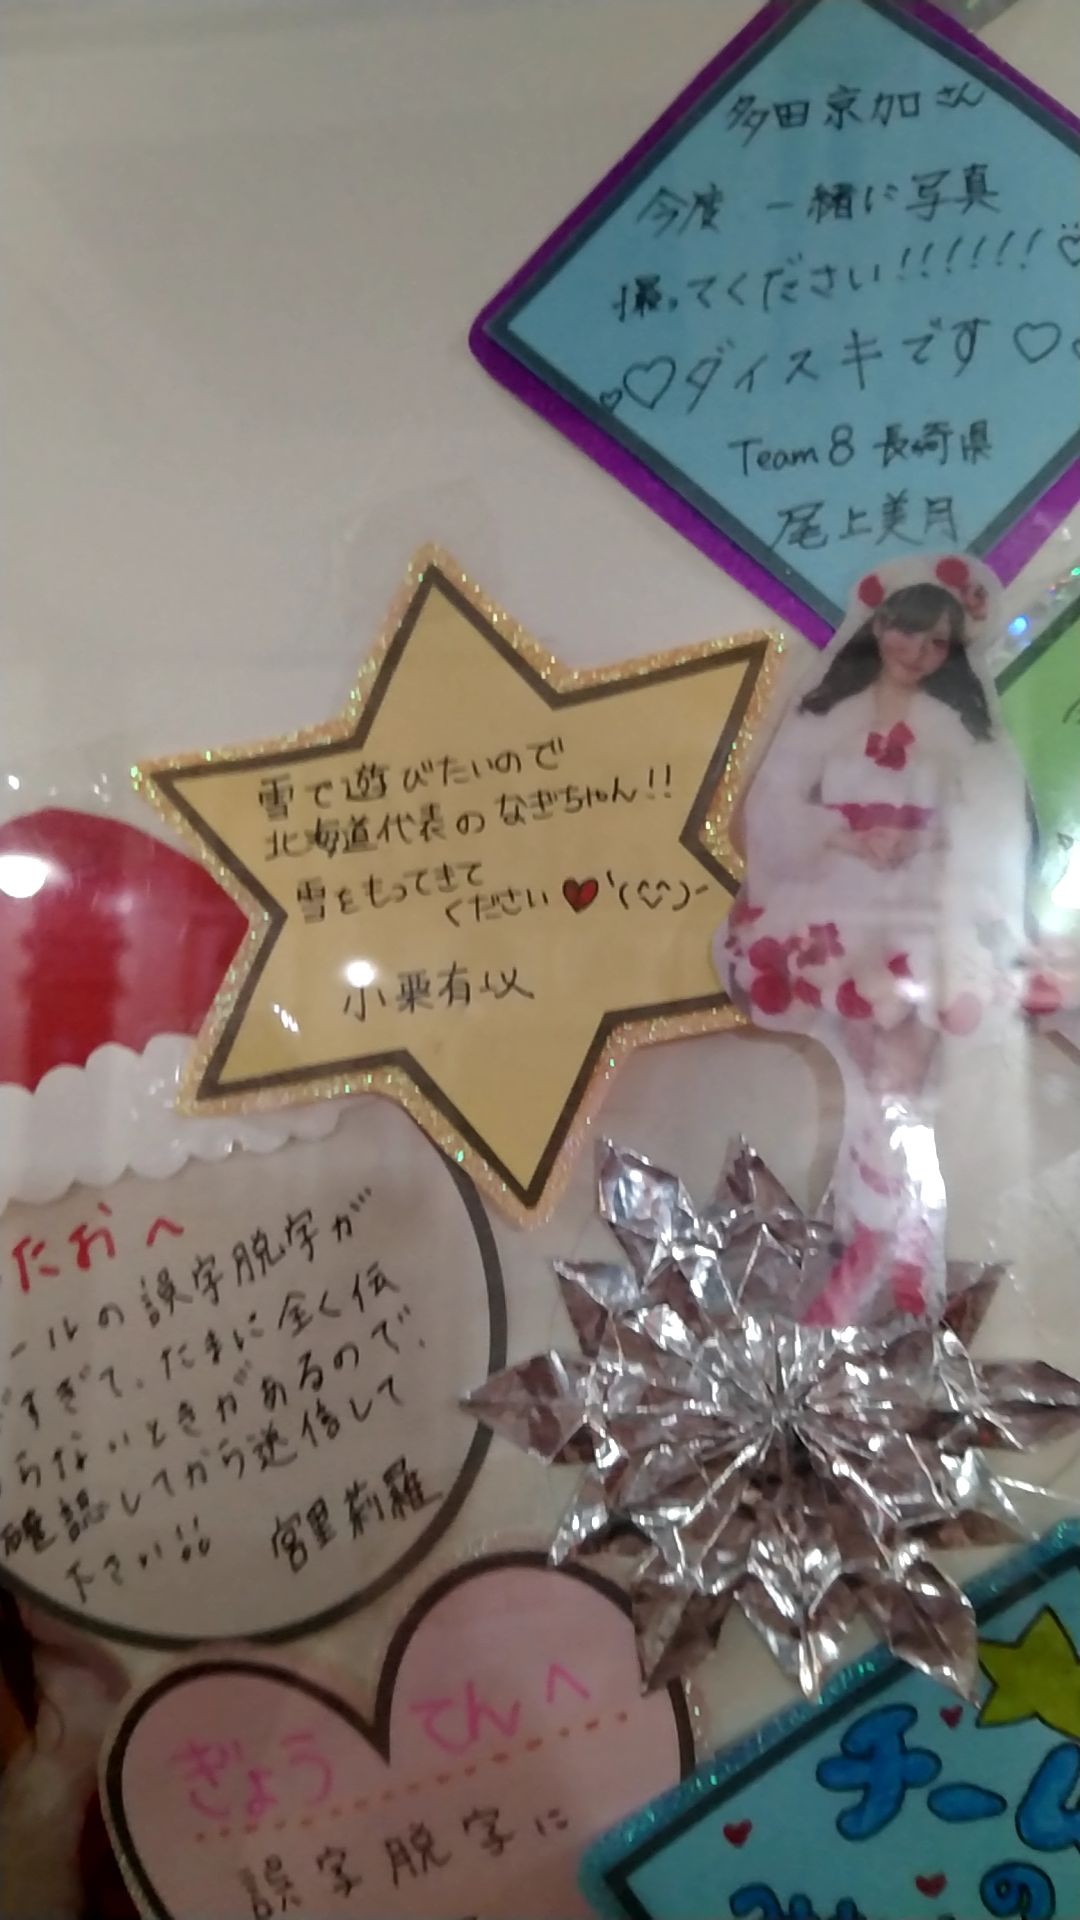 多田京加さん
今度 一緒に写真
撮ってください!!!!!!♡
♡♡ダイスキです♡
Team8 長崎県
尾上美月
雪で遊びたいので
北海道代表のなぎちゃん!!
雪をもってきて
ください♥'(ˆ◡ˆ)-
小栗有以
たおへ
ールの誤字脱字が
すぎて、たまに全く伝
らないときがあるので、
確認してから送信して
下さい!!
宮里莉羅
ぎょうてんへ
誤字脱字に
チーム
の